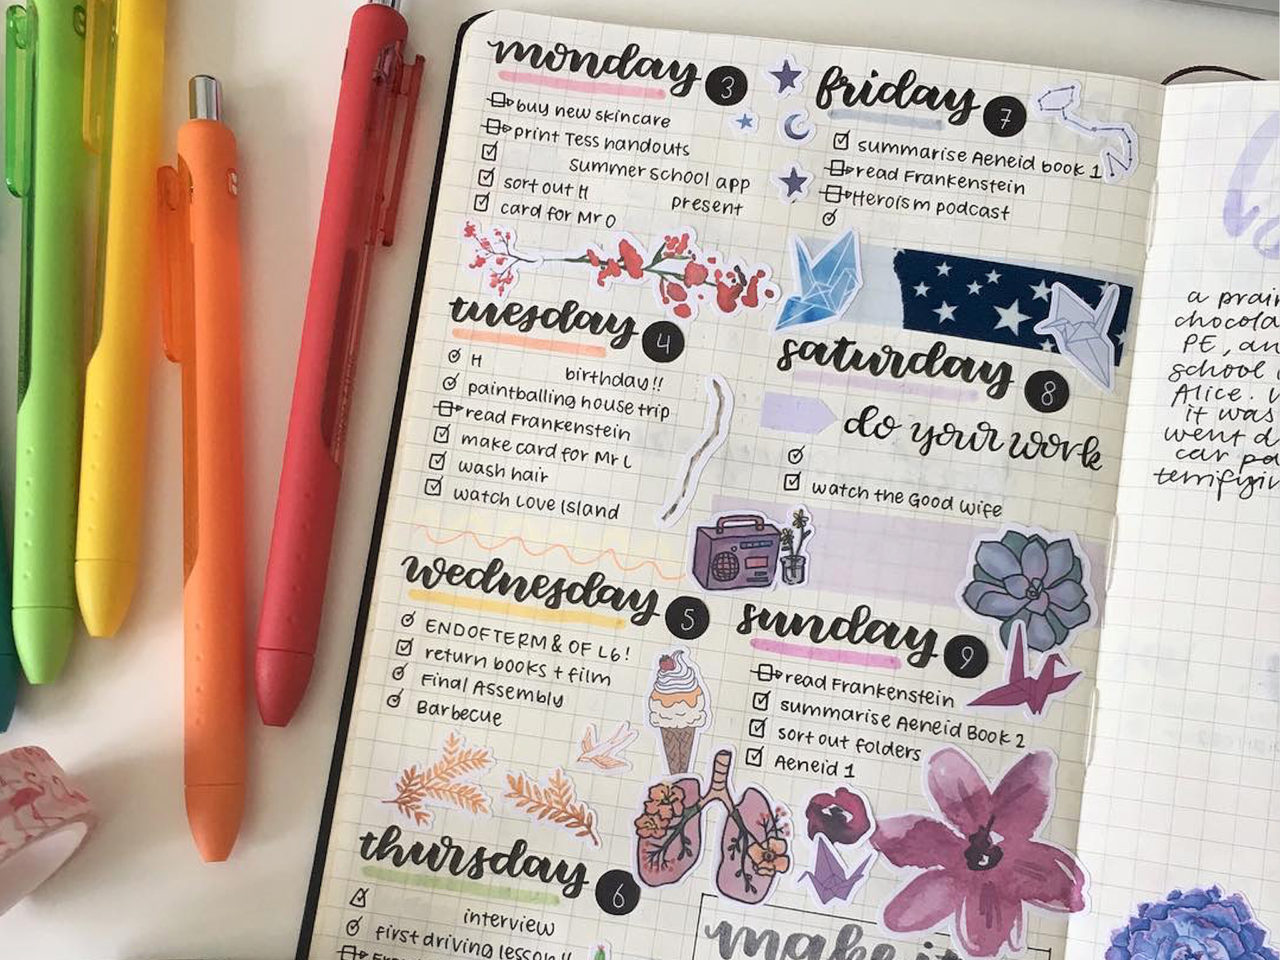 monday 3
buy new skincare
print Tess handouts
summer school app
sort out H present
card for Mr O
tuesday 4
H birthday!!
paintballing house trip
read Frankenstein
make card for Mr L
wash hair
watch Love Island
wednesday 5
END OF TERM & OF L6!
return books + film
Final Assembly
Barbecue
thursday 6
interview
first driving lesson!!
friday 7
summarise Aeneid book 1
read Frankenstein
Heroism podcast
saturday 8
do your work
watch the Good Wife
sunday 9
read Frankenstein
summarise Aeneid Book 2
sort out folders
Aeneid 1
make it
a prair
chocola
PE, an
school
Alice.
it was
went d
car pa
terrifyin